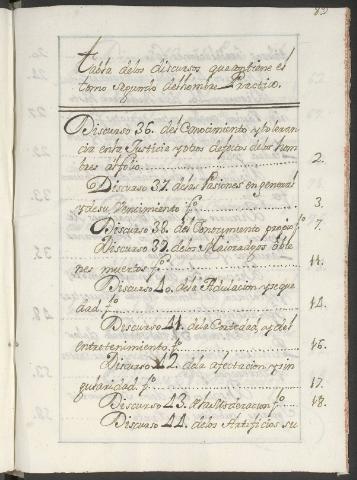 Tabla delos discursos que contiene el
tomo segundo del hombre Practico.
Discurso 36. del Conocimiento y toleran
cia enla Justicia y otros defectos delos hom
bres al folio 2.
Discurso 37. delas Pasiones en general
y de su Vencimiento f.º 3.
Discurso 38. del Conocimiento propio f.º 7.
Discurso 39. delos Maiorazgos o bie
nes muertos f.º 11.
Discurso 40. dela Adulacion y seque
dad f.º 14.
Discurso 41. dela Cortedad, y del
entretenimiento f.º 16.
Discurso 42. dela afectacion y sin
gularidad f.º 17.
Discurso 43. dela Moderacion f.º 18.
Discurso 44. delos Artificios su